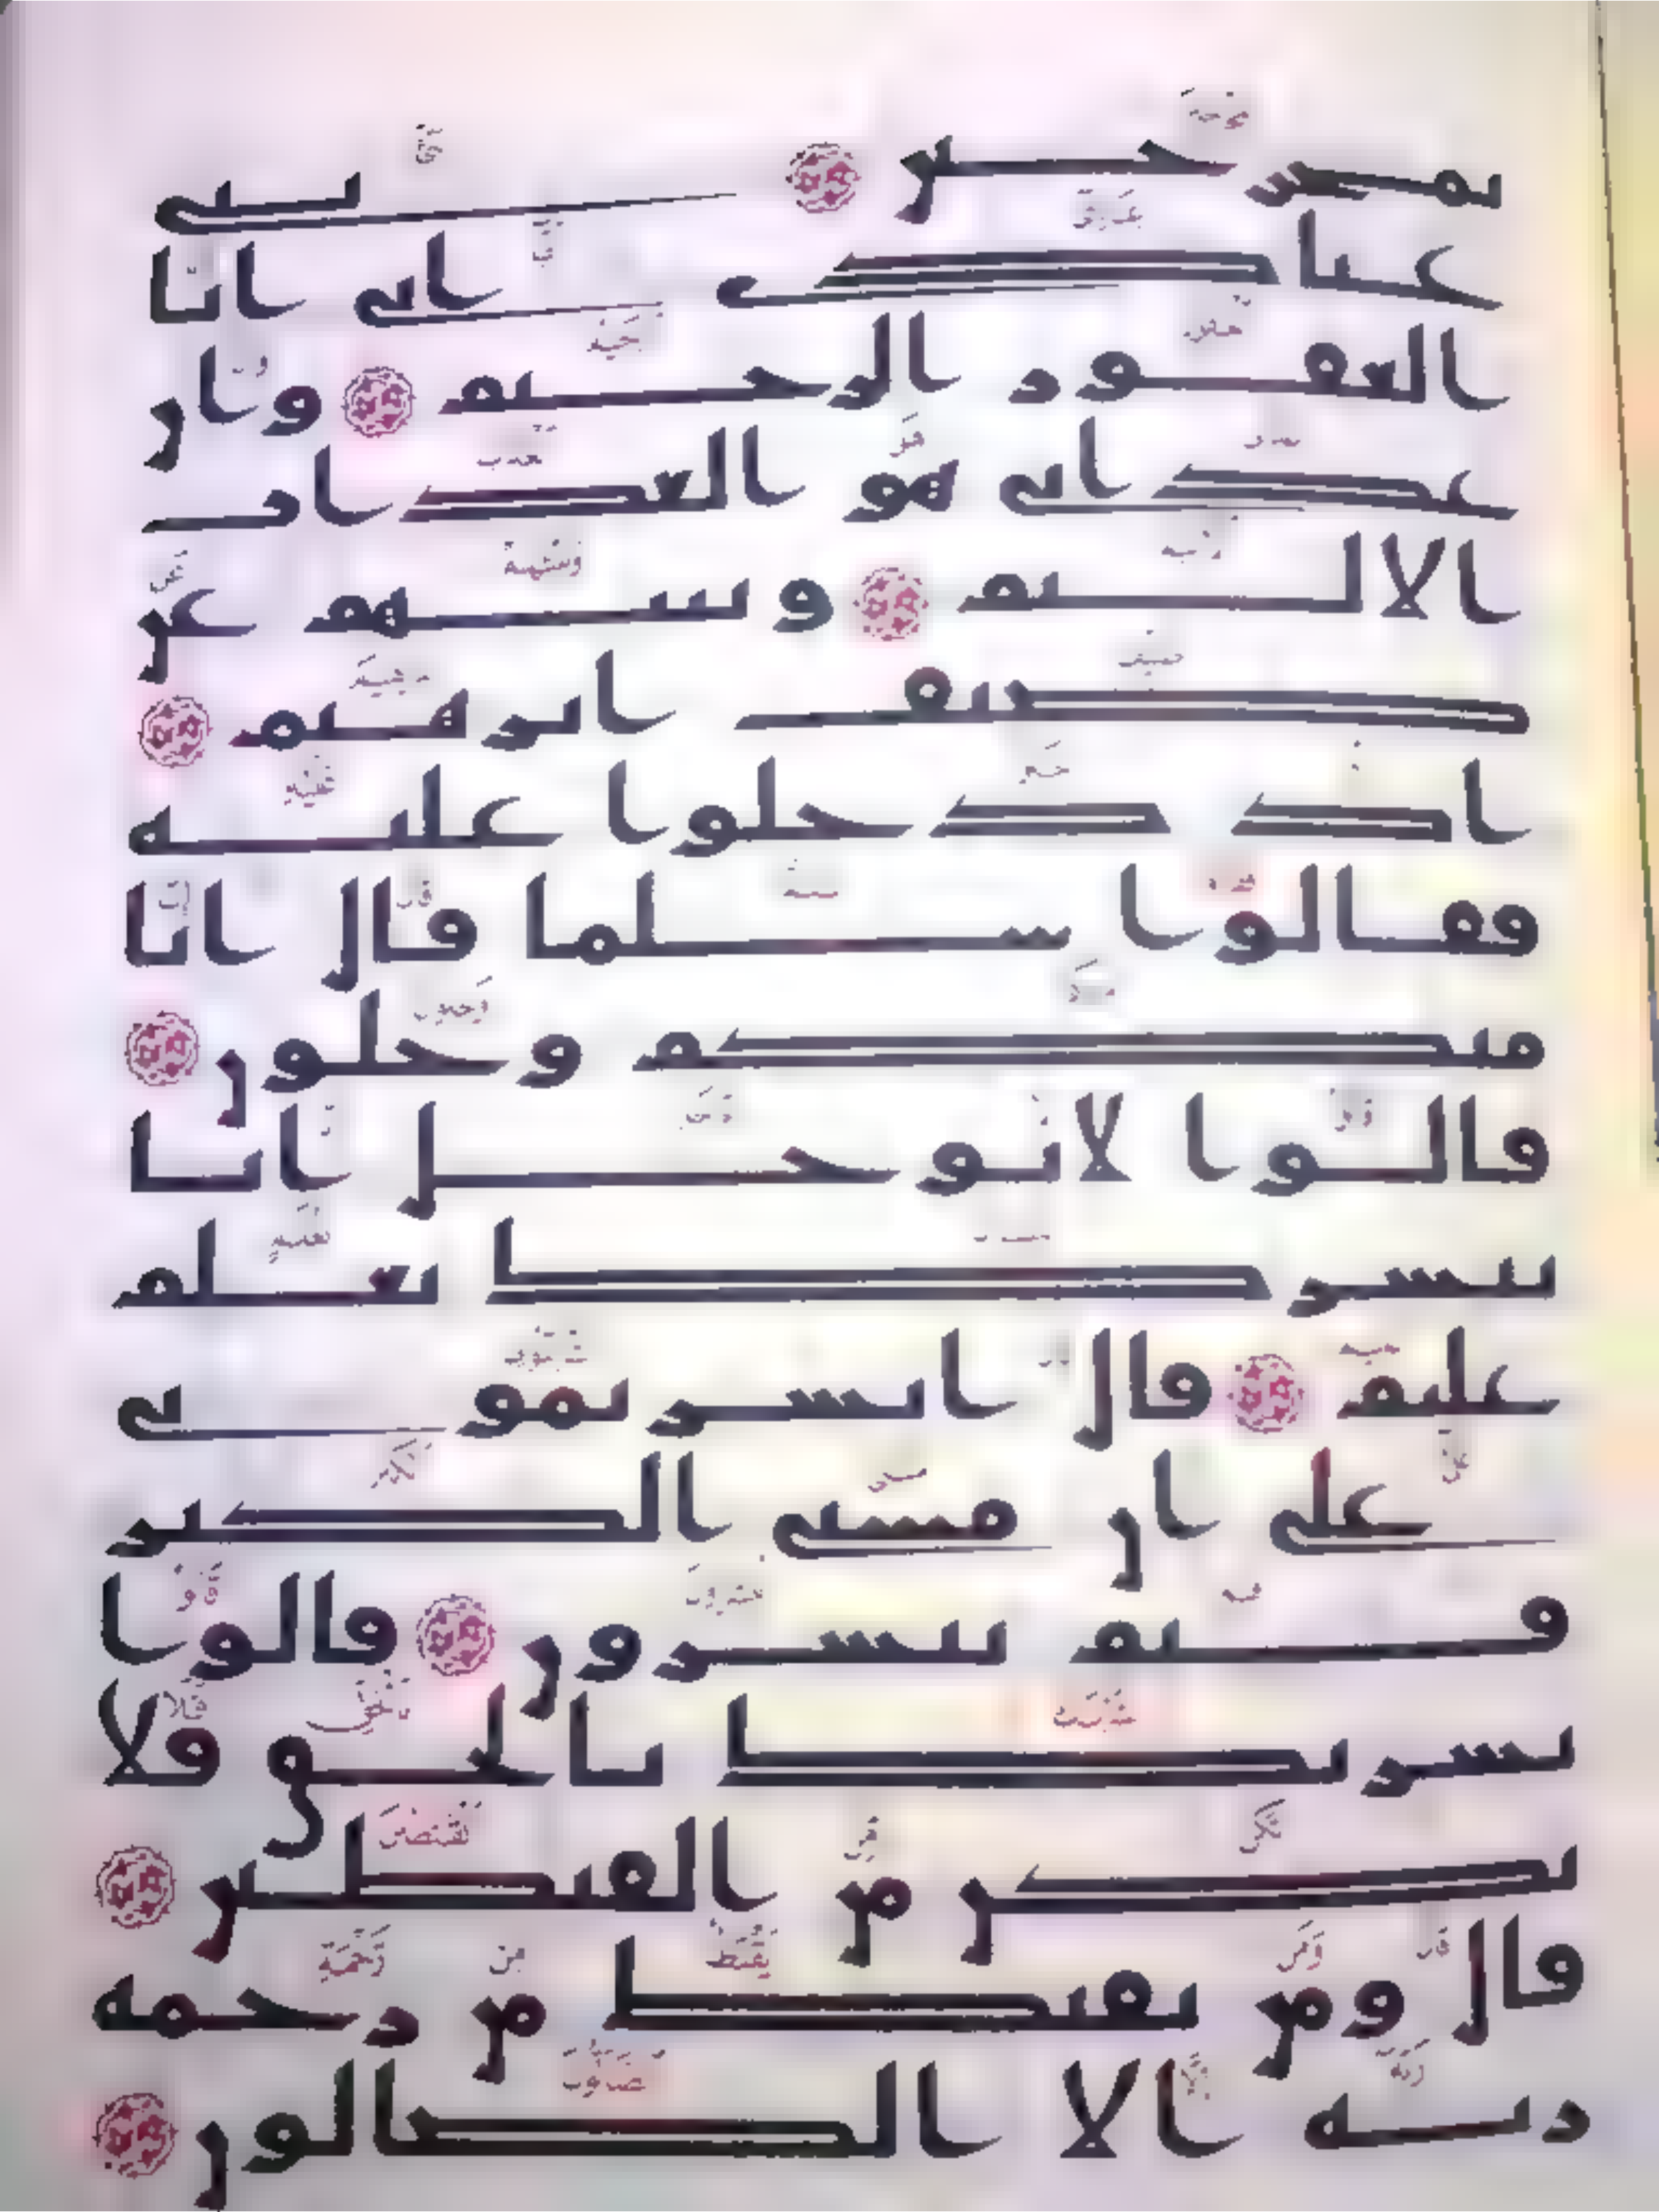 بمخرجين نبى
عبادى انى انا
الغفور الرحيم وان
عذابى هو العذاب
الاليم ونبئهم عن
ضيف ابرهيم
اذ دخلوا عليه
فقالوا سلما قال انا
منكم وجلون
قالوا لا توجل انا
نبشرك بغلم
عليم قال ابشرتمونى
على ان مسنى الكبر
فبم تبشرون قالوا
بشرنك بالحق فلا
تكن من القنطين
قال ومن يقنط من رحمه
ربه الا الضالون